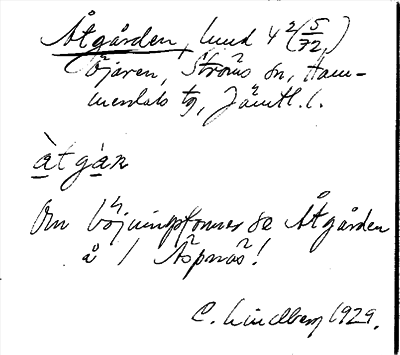 Åtgården, lund 4 2(5/72)
Löjaren, Ströms sn, Ham-
merdals tg, Jämtl. l.
àtgàn
Om böjningsformer se Åtgården
å / Äspnäs!
C. Lindberg 1929.